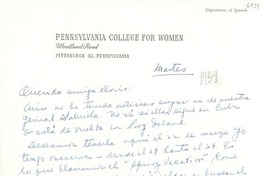 Department of Spanish
PENNSYLVANIA COLLEGE FOR WOMEN
Woodland Road
PITTSBURGH 32, PENNSYLVANIA
Martes
Querida amiga Doris:
Aún no he tenido noticias suyas ni de nuestra
genial Gabriela. No sé si ellas sigue en Cuba
o está de vuelta en Long Island.
Deseamos tenerla aquí el 22 de marzo. Yo
tengo vacaciones - desde el 19 hasta el 29. Es
lo que llamamos el "Spring Vacation". Como